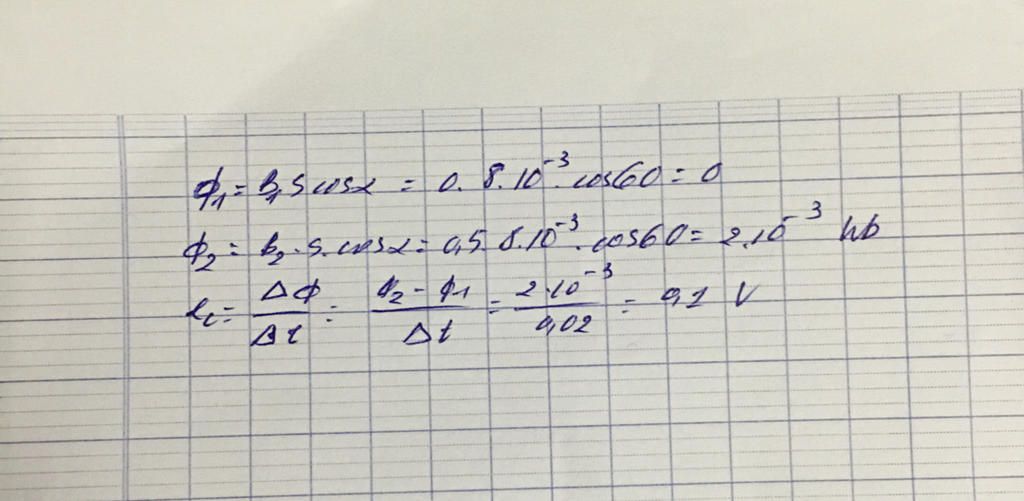 ϕ₁ = B₁S cosα = 0.8.10⁻³.cos60 = 0
ϕ₂ = B₂.S.cosα = 0,5.8.10⁻³.cos60 = 2.10⁻³ Wb
e_c = Δϕ/Δt = (ϕ₂ - ϕ₁)/Δt = 2.10⁻³/0,02 = 0,1 V